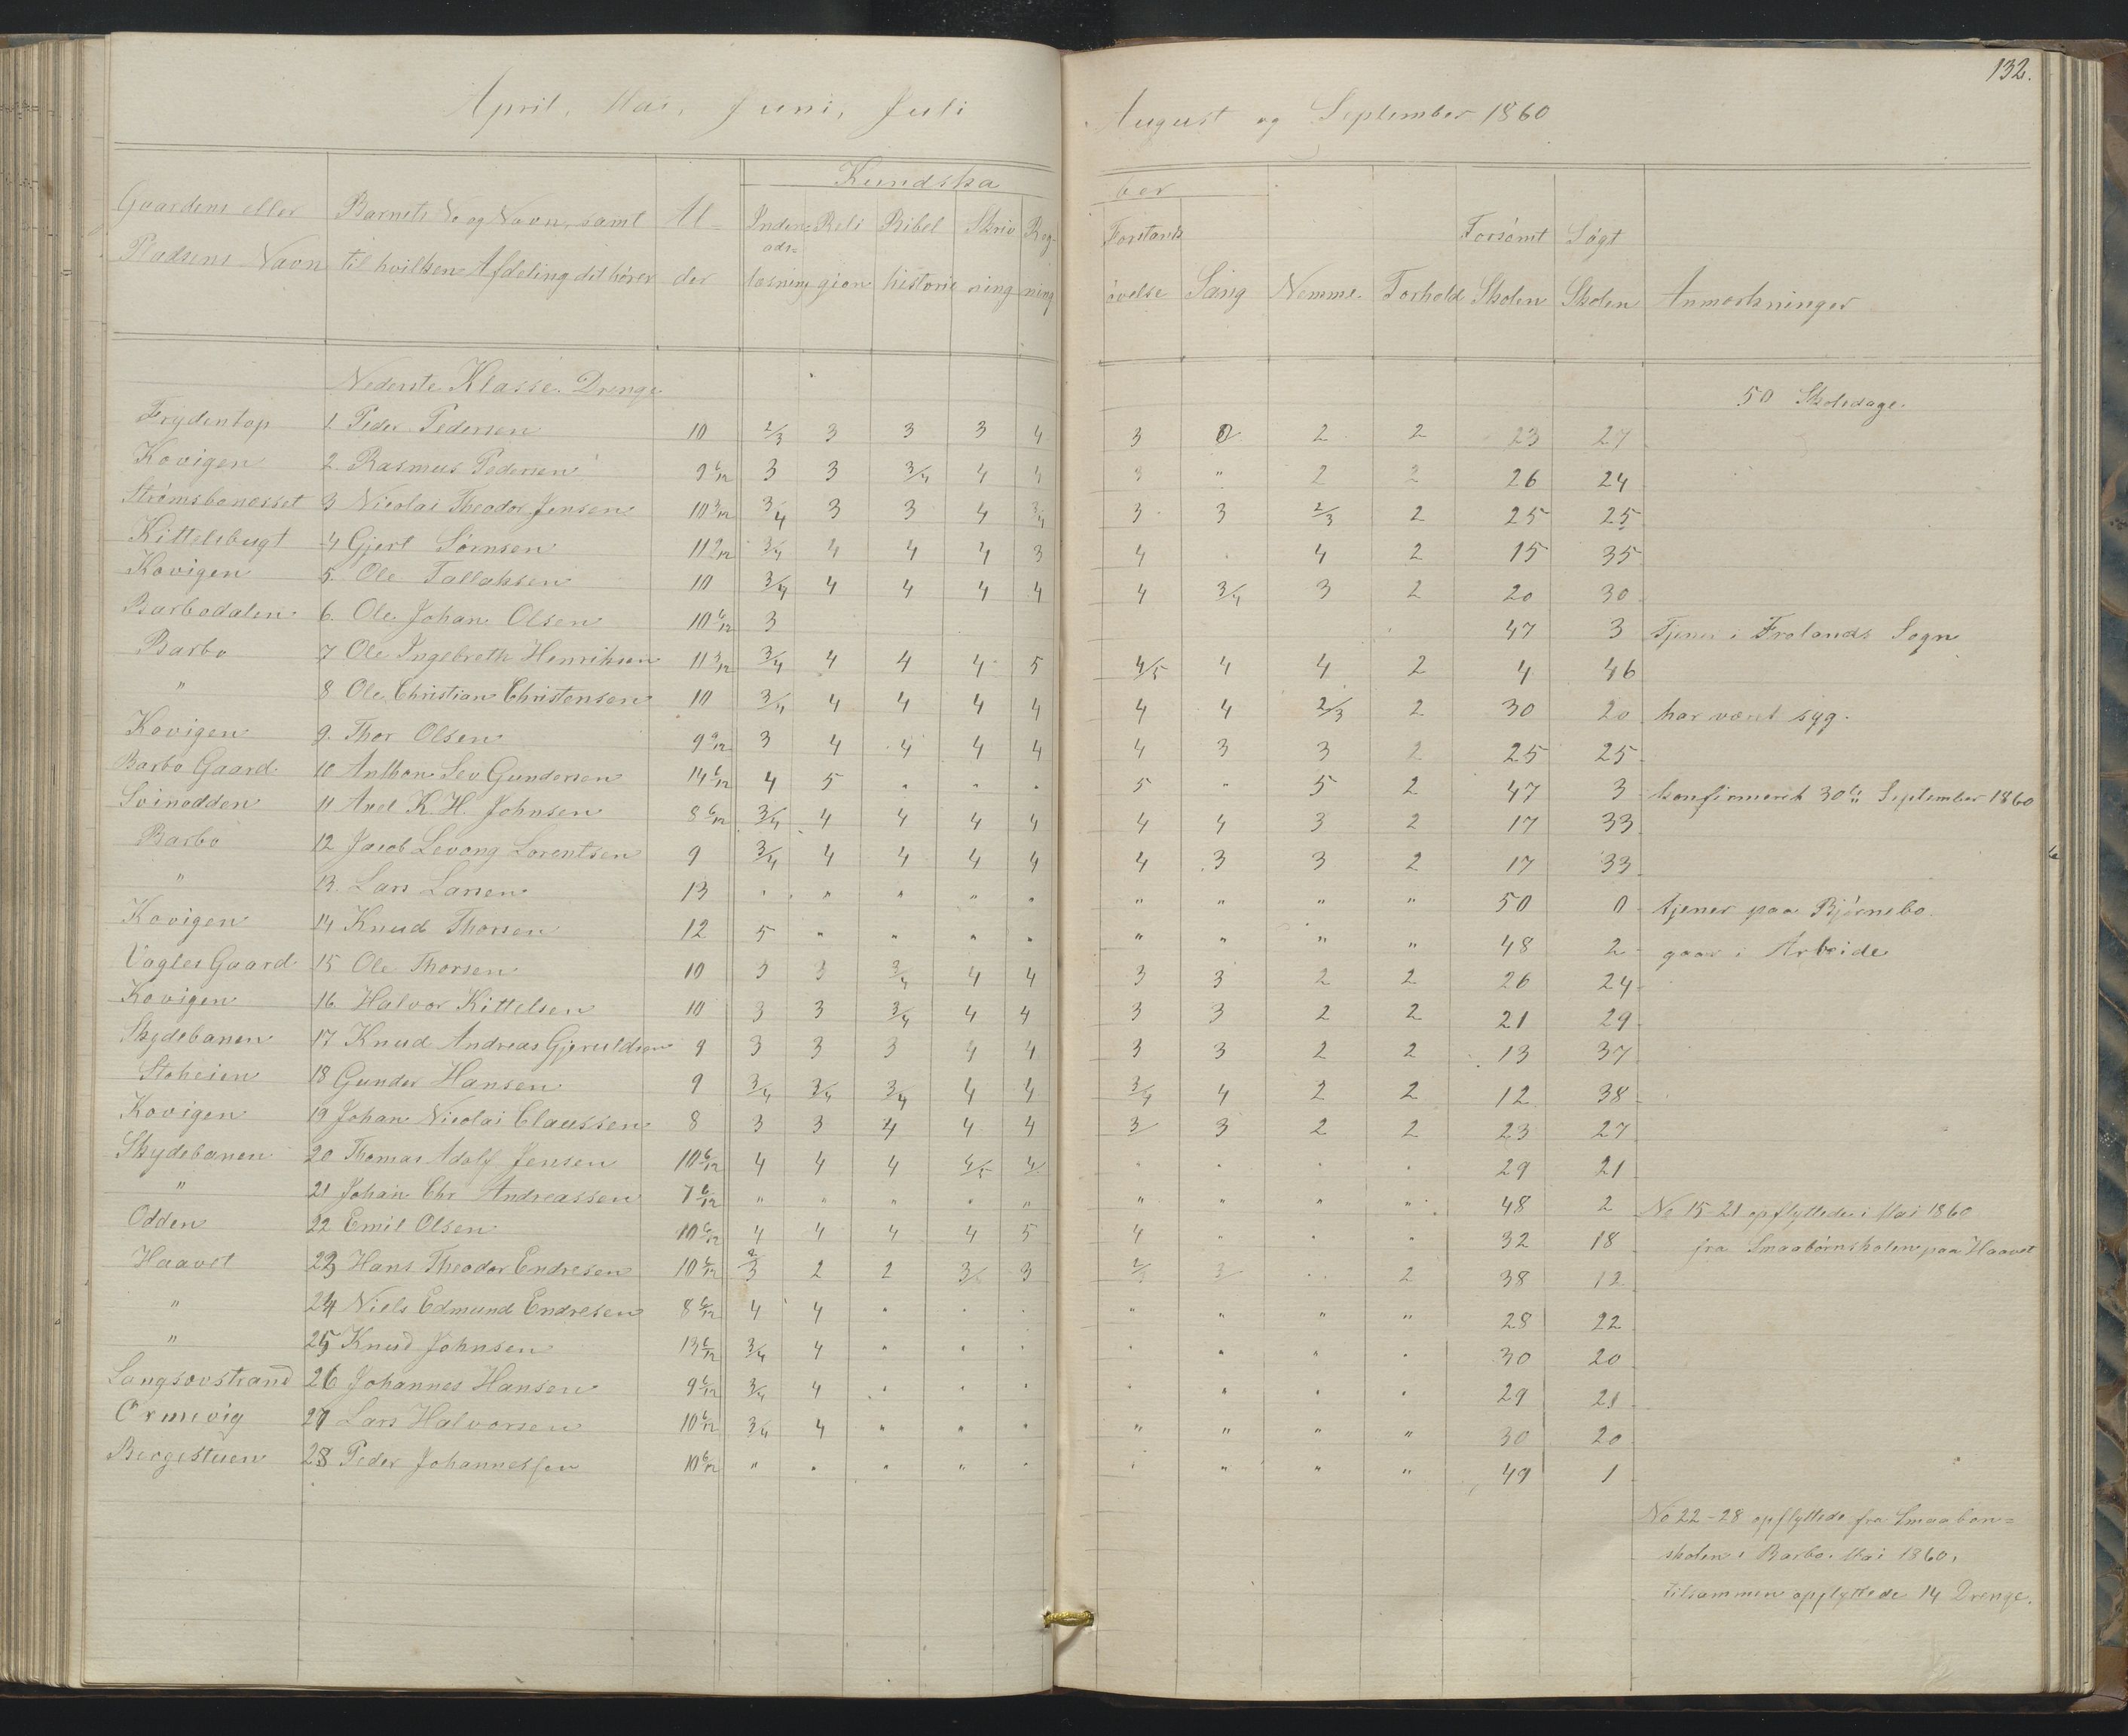 132.
April, Mai, Juni, Juli August og September 1860
Kundska ber
Gaardens eller Barnets No og Navn, samt Al- Inden- Reli Bibel Skriv Reg- Forstands Forsømt Søgt
ads-
Pladsens Navn til hvilken Afdeling det hører der læsning gion historie ning ning øvelse Sang Nemme. Forhold Skolen Skolen Anmærkninger
Nederste Klasse. Drenge 50 Skoledage.
Frydentop 1. Peder Pedersen 10 2/3 3 3 3 4 3 0 2 2 23 27
Kovigen 2. Rasmus Pedersen 9 6/12 3 3 3/4 4 4 3 " 2 2 26 24
Strømsbonesset 3 Nicolai Theodor Jensen 10 3/12 3/4 3 3 4 3/4 3 3 2/3 2 25 25
Kittelsbugt 4 Gjert Sørnsen 11 2/12 3/4 4 4 4 3 4 . 4 2 15 35
Kovigen 5. Ole Tallaksen 10 3/4 4 4 4 4 4 3/4 3 2 20 30
Barbodalen 6. Ole Johan Olsen 10 6/12 3 47 3 Tjener i Frolands Sogn
Barbo 7 Ole Ingebreth Henriksen 11 3/12 3/4 4 4 4 5 4/5 4 4 2 4 46
" 8 Ole Christian Christensen 10 3/4 4 4 4 4 4 4 2/3 2 30 20 har været syg.
Kovigen 9. Thor Olsen 9 9/12 3 4 4 4 4 4 3 3 2 25 25
Barbo Gaard. 10 Anthon Sev Gundersen 14 6/12 4 5 . . . 5 " 5 2 47 3 konfirmeret 30te September 1860
Svinodden 11 Axel K. H. Johnsen 8 6/12 3/4 4 4 4 4 4 4 3 2 17 33
Barbo 12 Jacob Levong Lorentsen 9 3/4 4 4 4 4 4 3 3 2 17 33
" 13. Lars Larsen 13 " " " " " " " " " 50 0 tjener paa Bjørnebo.
Kovigen 14 Knud Thorsen 12 5 " " " " " " " " 48 2 gaar i Arbeide
Vagles Gaard 15 Ole Thorsen 10 3 3 3/4 4 4 3 3 2 2 26 24
Kovigen 16 Halvor Kittelsen 10 3 3 3/4 4 4 3 3 2 2 21 29
Skydebanen 17 Knud Andreas Gjeruldsen 9 3 3 3 4 4 3 3 2 2 13 37
Stoheien 18 Gunder Hansen 9 3/4 3/4 3/4 4 4 3/4 4 2 2 12 38
Kovigen 19 Johan Nicolai Claussen 8 3 3 4 4 4 3 3 2 2 23 27
Skydebanen 20 Thomas Adolf Jensen 10 6/12 4 4 4 4/5 4 " " " " 29 21
" 21 Johan Chr Andreassen 7 6/12 " " " " " " " " " 48 2 No 15-21 opflyttede i Mai 1860
Odden 22 Emil Olsen 10 6/12 4 4 4 4 5 4 " " " 32 18 fra Smaabørnskolen paa Haavet
Haavet 23 Hans Theodor Endresen 10 6/12 2/3 2 2 3/4 3 2/3 3 . 2 38 12
" 24 Niels Edmund Endresen 8 6/12 4 4 " " " " " " " 28 22
" 25 Knud Johnsen 13 6/12 3/4 4 " " " " " " " 30 20
Langsævstrand 26 Johannes Hansen 9 6/12 3/4 4 " " " " " " " 29 21
Ormevig 27 Lars Halvorsen 10 6/12 3/4 4 " " " " " " " 30 20
Bergestuen 28 Peder Johannessen 10 6/12 " " " " " " " " " 49 1
No 22-28 opflyttede fra Smaabørn=
skolen i Barbo. Mai 1860.
tilsammen opflyttede 14 Drenge.